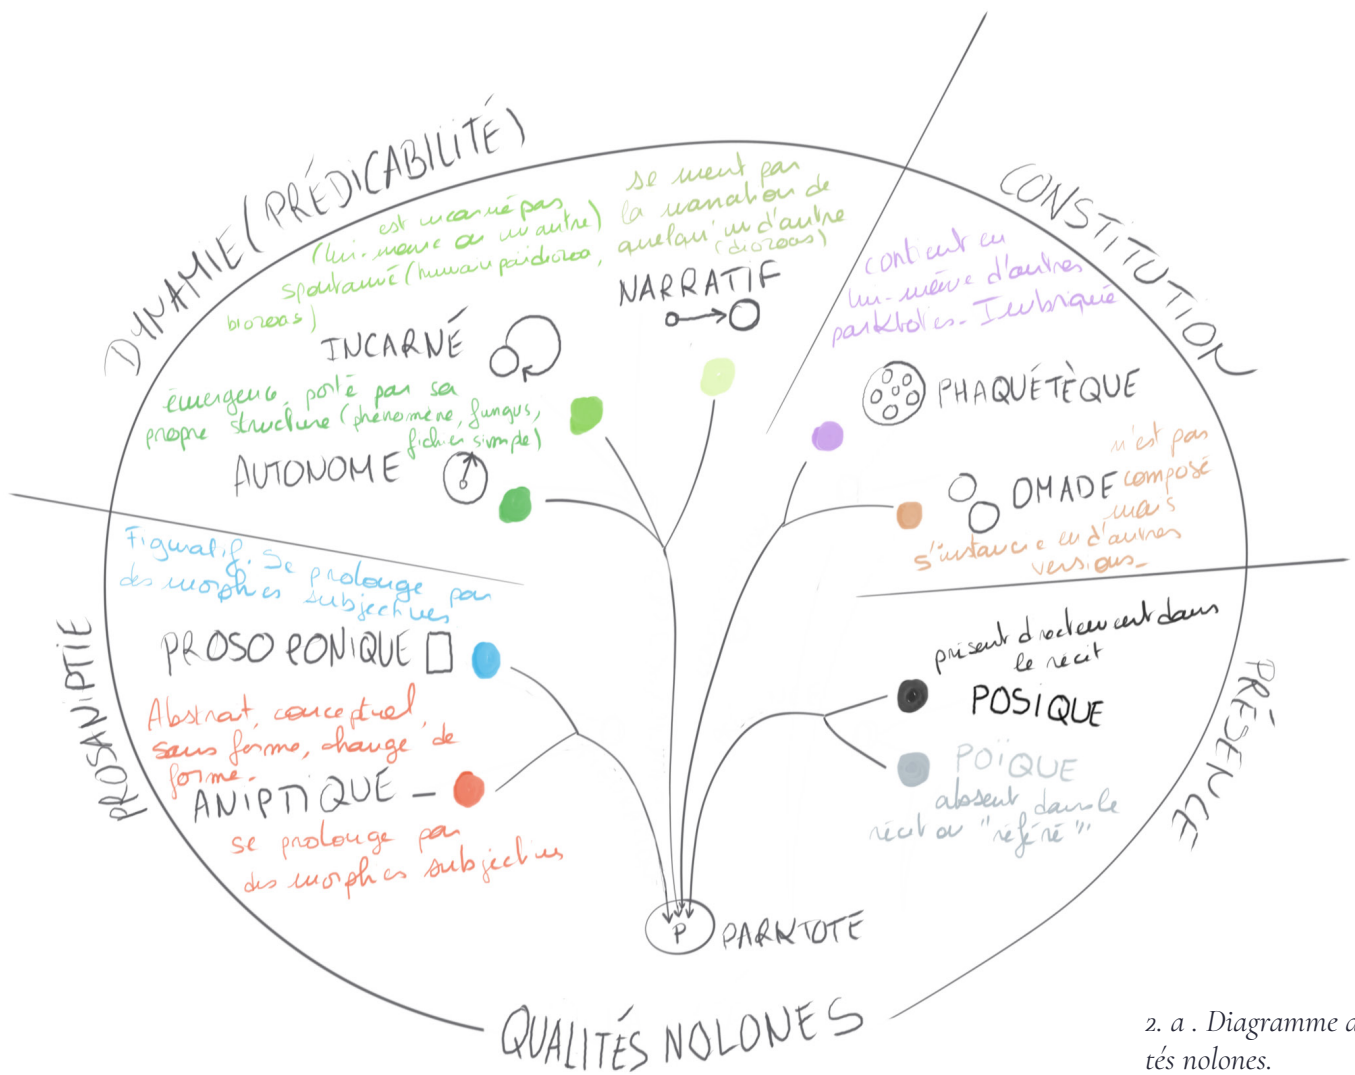 DYNAMIE (PRÉDICABILITÉ)
est incarné par
(lui-même ou un autre)
spontané (human paidiozoa,
biozoas)
INCARNÉ
se meut par
la narration de
quelqu'un d'autre
(diozoas)
NARRATIF
émergence, porté par sa
propre structure (phénomène, fungus,
fichier simple)
AUTONOME
CONSTITUTION
contient en
lui-même d'autres
parktotes. Imbriqué
PHAQUÉTÈQUE
n'est pas
OMADE composé
mais
s'instancie en d'autres
versions.
PROSANIPTIE
Figuratif. Se prolonge par
des morphes subjectives
PROSOPONIQUE
Abstrait, conceptuel,
sans forme, change de
forme.
ANIPTIQUE
se prolonge par
des morphes subjectives
PRÉSENCE
présent directement dans
le récit
POSIQUE
POÏQUE
absent dans le
récit ou "référé"
P PARKTOTE
QUALITÉS NOLONES
2. a . Diagramme
tés nolones.